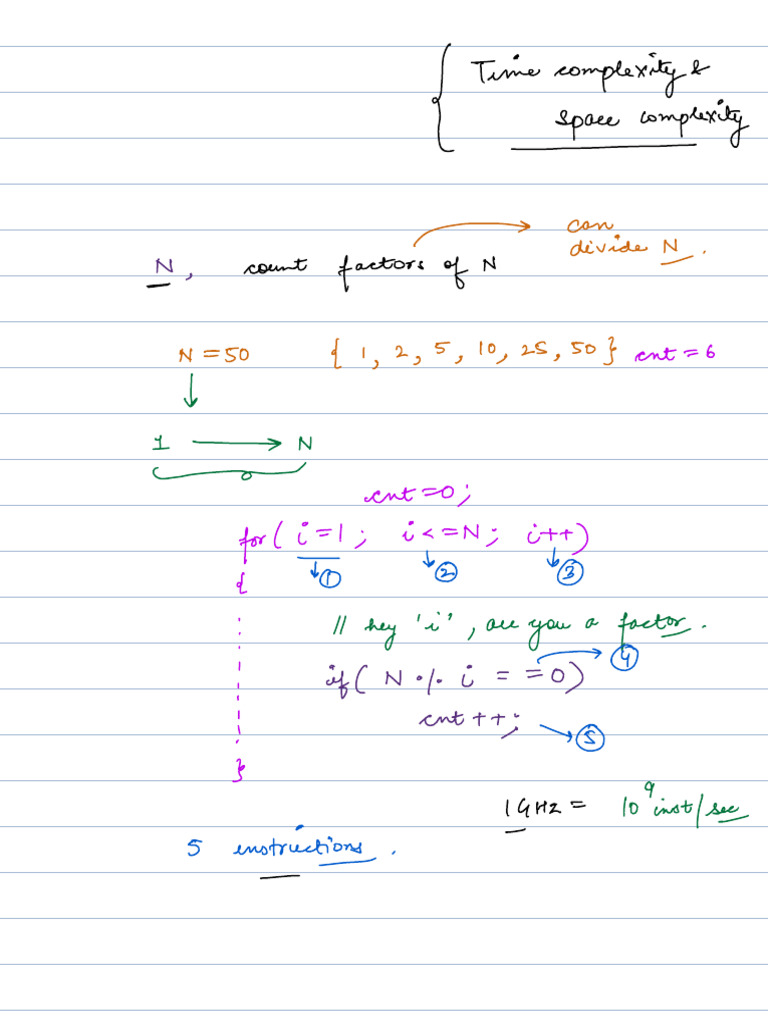 Time complexity &
space complexity
can
divide N.
N, count factors of N
N = 50 { 1, 2, 5, 10, 25, 50 } cnt = 6
1 → N
cnt = 0;
for( i=1; i<=N; i++)
① ② ③
{
// hey 'i', are you a factor.
④
if( N % i = = 0)
cnt ++;
⑤
}
1GHz = 10⁹ inst/sec
5 instructions.